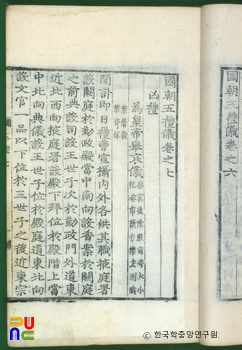 國朝五禮儀卷之七
凶禮
爲皇帝擧哀儀
聞訃卽日禮曹宣攝內外各供其職掖庭署
設闕庭於勤政殿當中南向設香案於闕庭
之前典設司設王世子次於勤政門外道東
近北西向掖庭署設殿下拜位於殿階上當
中北向典儀設王世子位於殿庭道東北向
設文官一品以下位於王世子之後近東宗
國朝五禮儀卷之六
PUNC
한국학중앙연구원.